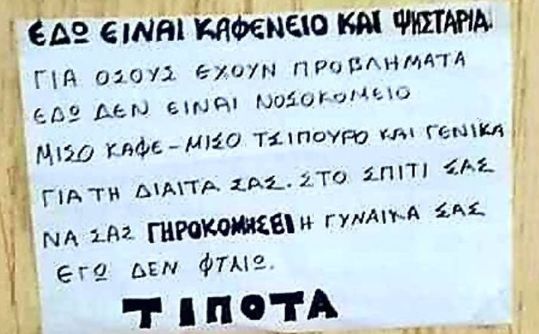 ΕΔΩ ΕΙΝΑΙ ΚΑΦΕΝΕΙΟ ΚΑΙ ΨΗΣΤΑΡΙΑ.
ΓΙΑ ΟΣΟΥΣ ΕΧΟΥΝ ΠΡΟΒΛΗΜΑΤΑ
ΕΔΩ ΔΕΝ ΕΙΝΑΙ ΝΟΣΟΚΟΜΕΙΟ
ΜΙΣΟ ΚΑΦΕ - ΜΙΣΟ ΤΣΙΠΟΥΡΟ ΚΑΙ ΓΕΝΙΚΑ
ΓΙΑ ΤΗ ΔΙΑΙΤΑ ΣΑΣ. ΣΤΟ ΣΠΙΤΙ ΣΑΣ
ΝΑ ΣΑΣ ΓΗΡΟΚΟΜΗΣΕΙ Η ΓΥΝΑΙΚΑ ΣΑΣ
ΕΓΩ ΔΕΝ ΦΤΑΙΩ.
ΤΙΠΟΤΑ